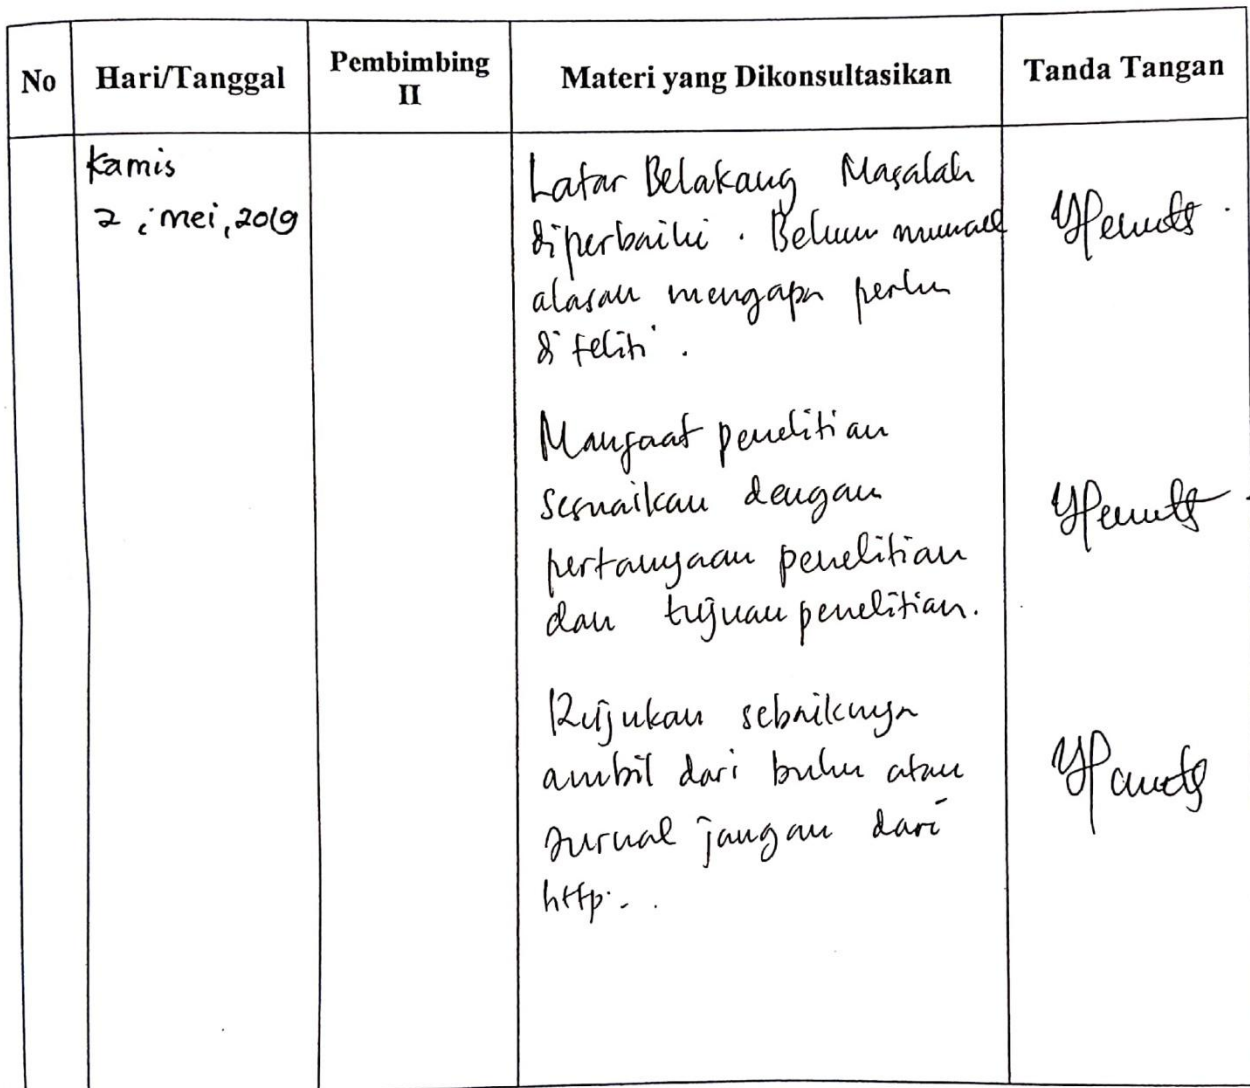 No Hari/Tanggal Pembimbing II Materi yang Dikonsultasikan Tanda Tangan
Kamis
2, mei, 2019
Latar Belakang Masalah
diperbaiki. Belum muncul
alasan mengapa perlu
diteliti.
Manfaat penelitian
sesuaikan dengan
pertanyaan penelitian
dan tujuan penelitian.
Rujukan sebaiknya
ambil dari buku atau
Jurnal jangan dari
http..